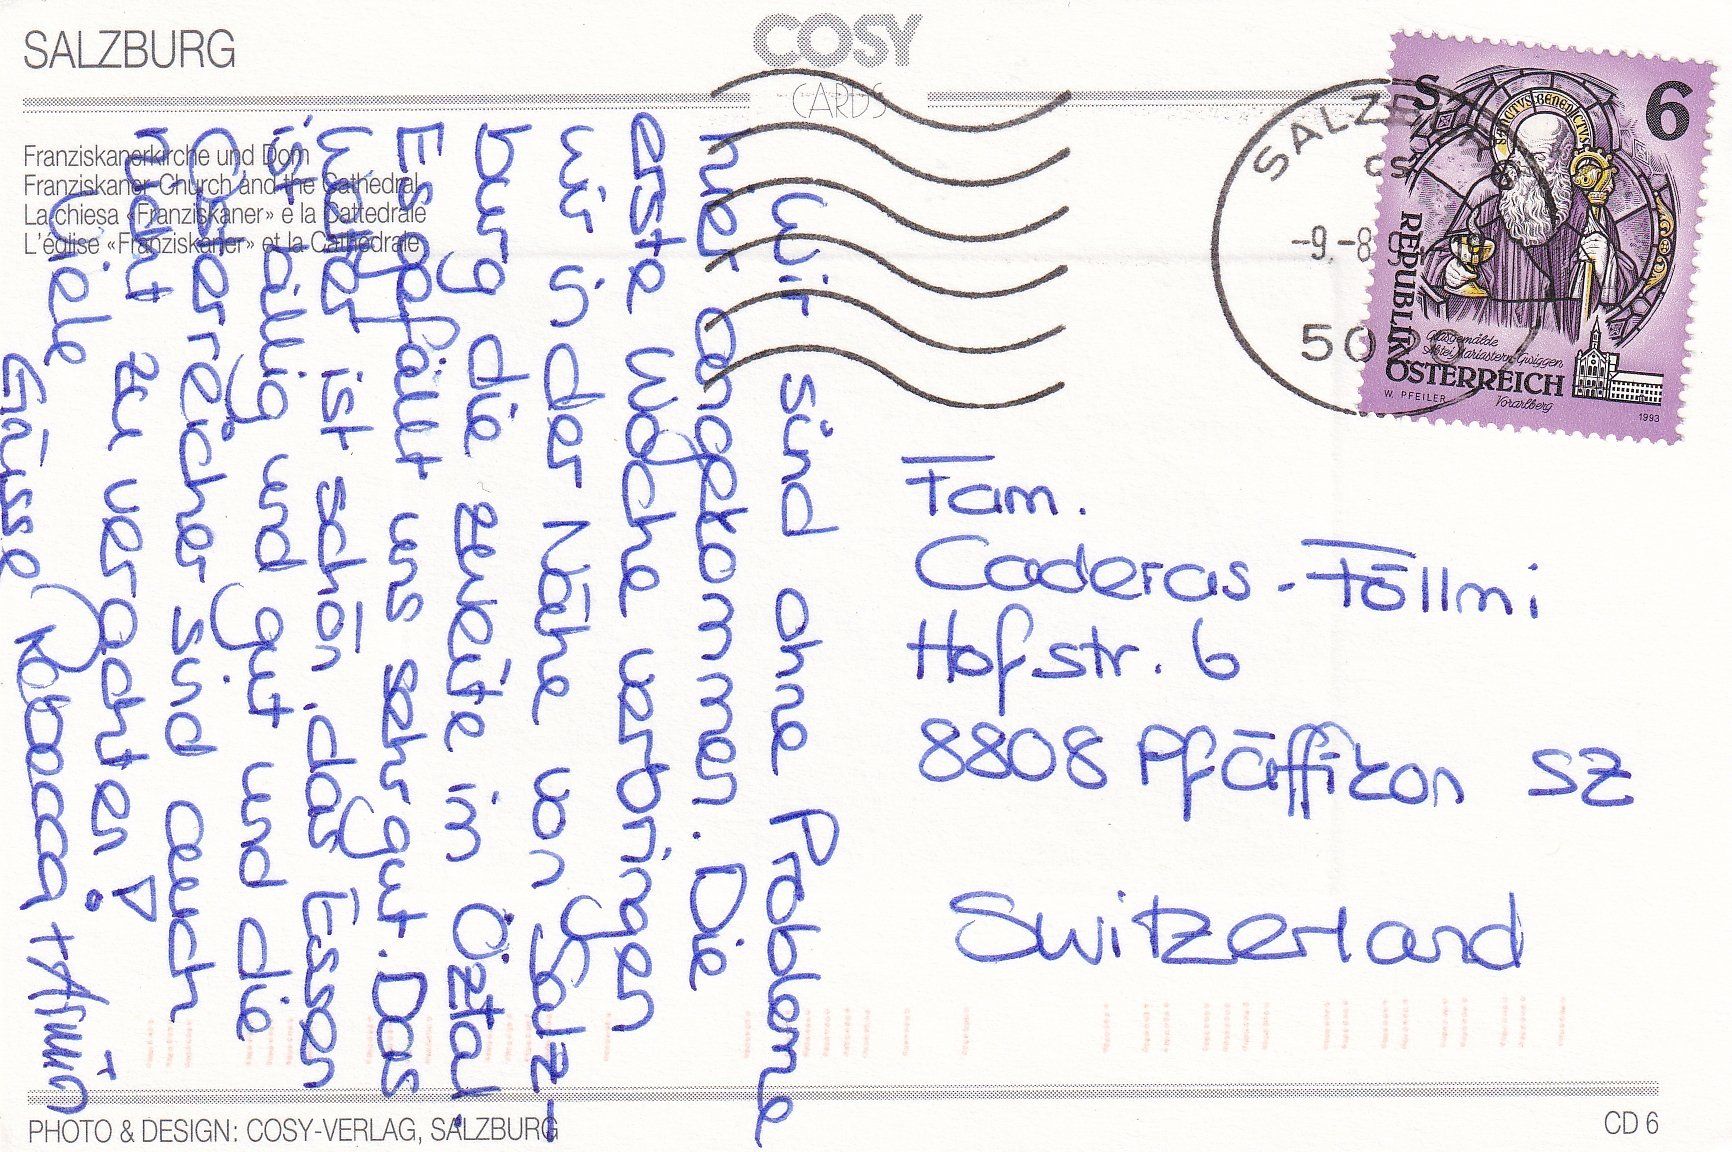 SALZBURG
COSY
CARDS
Franziskanerkirche und Dom
Franziskaner Church and the Cathedral
La chiesa «Franziskaner» e la Cattedrale
L'église «Franziskaner» et la Cathédrale
Wir sind ohne Probleme
hier angekommen. Die
erste Woche verbringen
wir in der Nähe von Salz-
burg die zweite im Ötztal.
Es gefällt uns sehr gut. Das
Wetter ist schön, das Essen
ist billig und gut und die
Österreicher sind auch
nicht zu verachten!
Viele
Grüsse Rebecca + Armin
SALZBURG
-9.-8.9
50
6
SANCTUS BENEDICTUS
REPUBLIK
ÖSTERREICH
Glasgemälde
Abtei Mariastern, Gwiggen
Vorarlberg
W. PFEILER
1993
Fam.
Caderas-Föllmi
Hofstr. 6
8808 Pfäffikon SZ
Switzerland
PHOTO & DESIGN: COSY-VERLAG, SALZBURG
CD 6